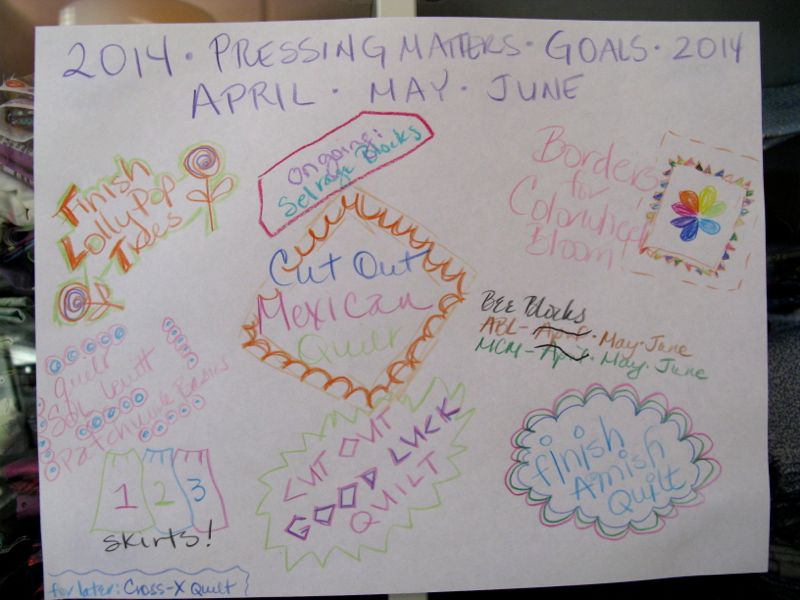 2014 · PRESSING MATTERS · GOALS · 2014
APRIL · MAY · JUNE
Ongoing:
Selvage Blocks
Finish
LollyPop
Trees
Borders
for
Colorwheel
Bloom!
Cut Out
Mexican
Quilt
BEE Blocks
ABL - April · May · June
MCM - April · May · June
quilt
Sol Lewitt
Patchwork Basics
1 2 3
skirts!
CUT OUT
GOOD LUCK
QUILT
finish
Amish
Quilt
for later: Cross-X Quilt